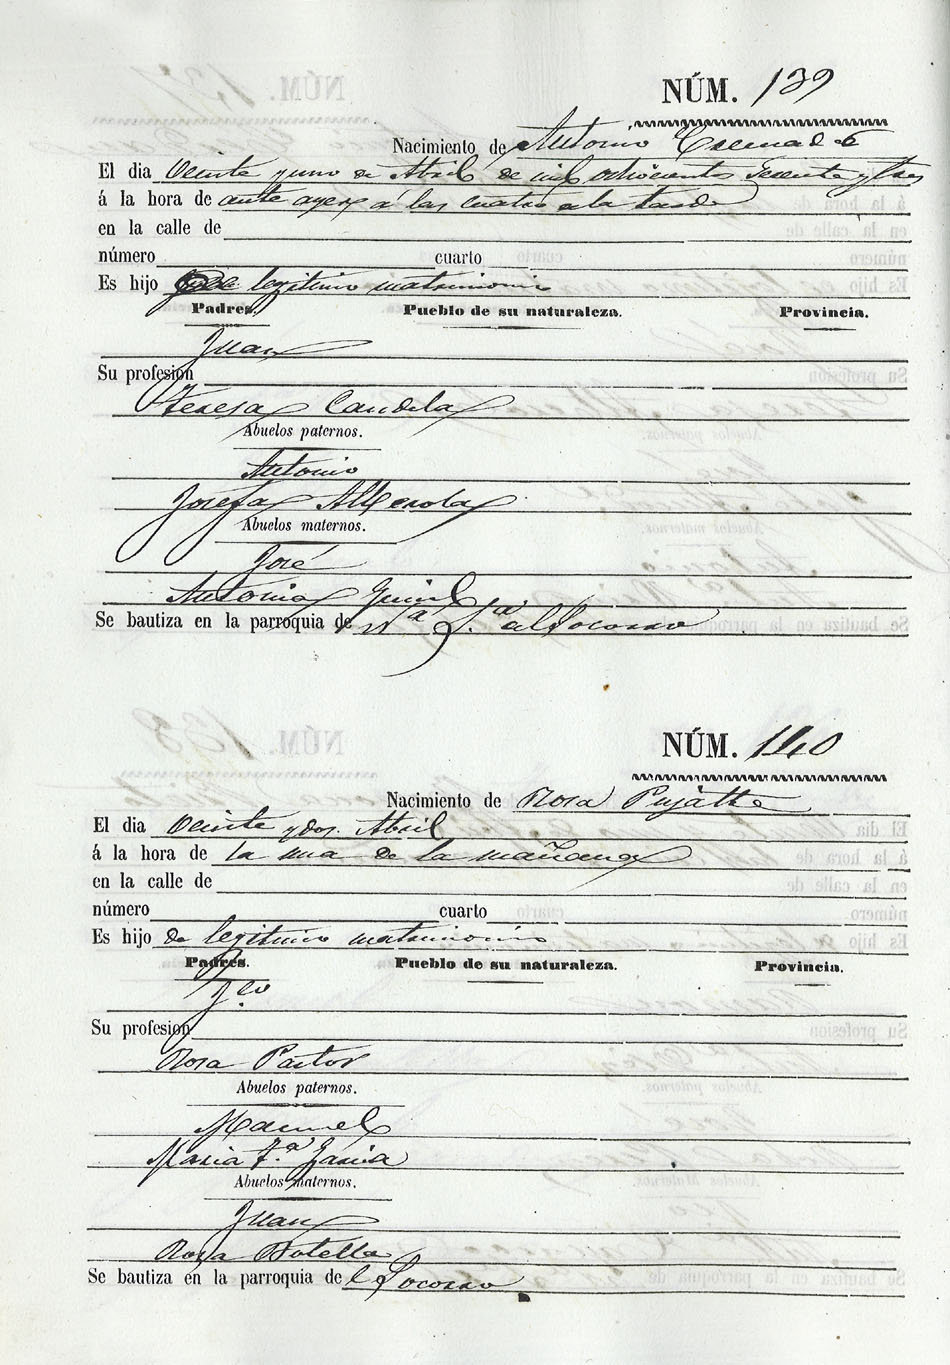 NÚM. 139
Nacimiento de Antonio Cremades
El dia Veinte y uno de Abril de mil ochocientos setenta y tres
á la hora de ante ayer á las cuatro de la tarde
en la calle de
número cuarto
Es hijo de legitimo matrimonio
Padres. Pueblo de su naturaleza. Provincia.
Juan
Su profesión
Teresa Candela
Abuelos paternos.
Antonio
Josefa Alberola
Abuelos maternos.
José
Antonia
Se bautiza en la parroquia de Nª Sª del Socorro
NÚM. 140
Nacimiento de Rosa Pujalte
El dia Veinte y dos Abril
á la hora de la una de la mañana
en la calle de
número cuarto
Es hijo de legitimo matrimonio
Padres. Pueblo de su naturaleza. Provincia.
Fco
Su profesión
Rosa Pastor
Abuelos paternos.
Manuel
Maria Fª Garcia
Abuelos maternos.
Juan
Rosa Botella
Se bautiza en la parroquia del Socorro